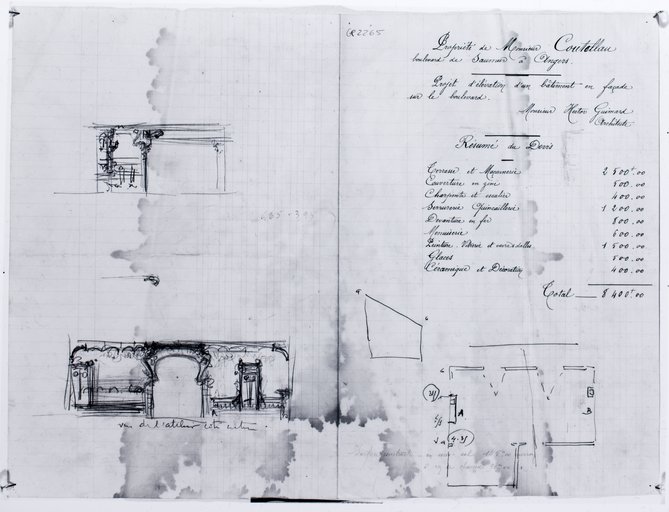 Q2265
Propriété de Monsieur Coutollau
boulevard de Saumur à Angers.
Projet d'élévation d'un bâtiment en façade
sur le boulevard.
Monsieur Hector Guimard
Architecte
Résumé du Devis
Terrasse et Maçonnerie 2 500f.00
Couverture en zinc 500.00
Charpente et escalier 400.00
Serrurerie Quincaillerie 1 200.00
Devanture en fer 800.00
Menuiserie 600.00
Peinture. Vitrerie et 1 500.00
Glaces 500.00
Céramique et Décoration 400.00
Total 8 400f.00
A
B
V
V
4.35
vue de l'atelier côté